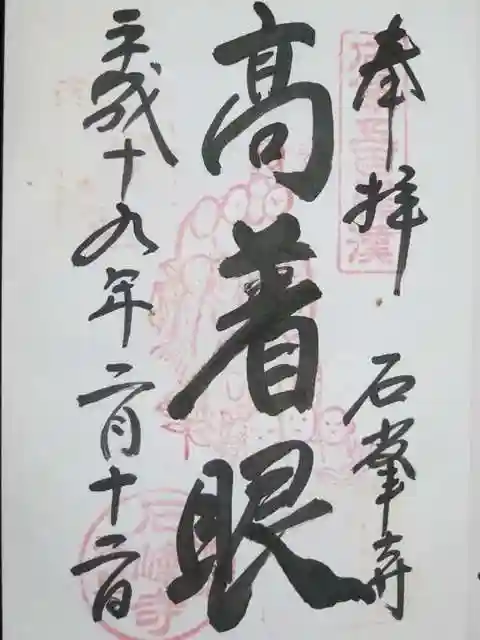 奉拝
石峯寺
高着眼
平成十九年二月十二日